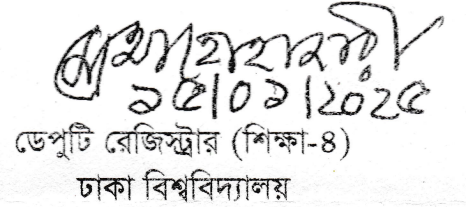 ১৫/০১/২০২৫
ডেপুটি রেজিস্ট্রার (শিক্ষা-৪)
ঢাকা বিশ্ববিদ্যালয়